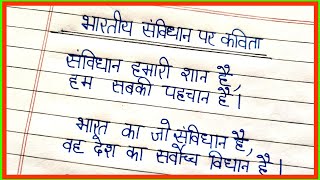 भारतीय संविधान पर कविता
संविधान हमारी शान है,
हम सबकी पहचान है।
भारत का जो संविधान है,
वह देश का सर्वोच्च विधान है।